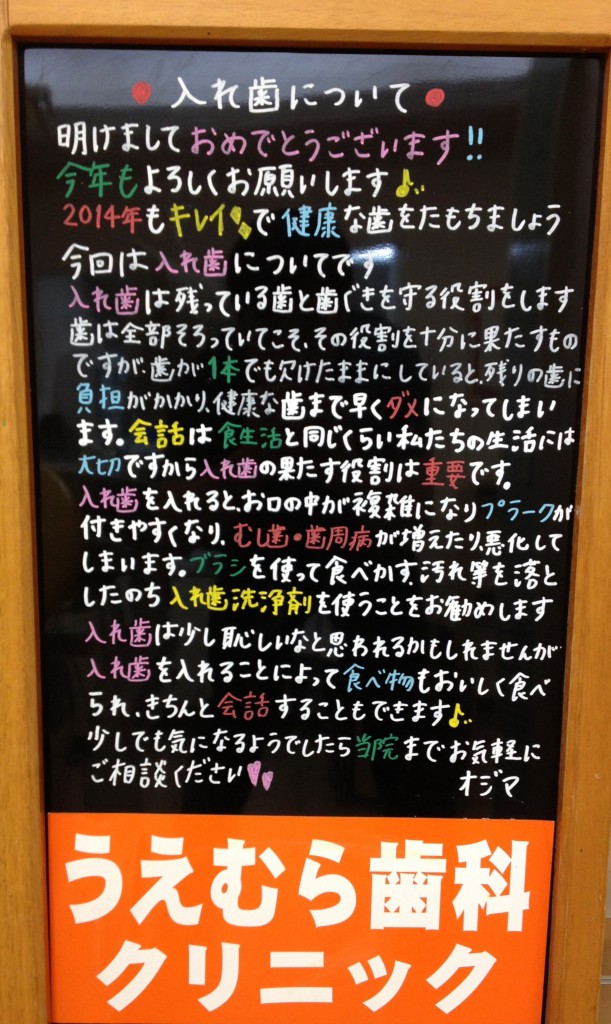 入れ歯について
明けましておめでとうございます!!
今年もよろしくお願いします♪
2014年もキレイで健康な歯をたもちましょう
今回は入れ歯についてです
入れ歯は残っている歯と歯ぐきを守る役割をします
歯は全部そろっていてこそ、その役割を十分に果たすもの
ですが、歯が1本でも欠けたままにしていると、残りの歯に
負担がかかり、健康な歯まで早くダメになってしまい
ます。会話は食生活と同じくらい私たちの生活には
大切ですから入れ歯の果たす役割は重要です。
入れ歯を入れると、お口の中が複雑になりプラークが
付きやすくなり、むし歯・歯周病が増えたり、悪化して
しまいます。ブラシを使って食べかす、汚れ等を落と
したのち入れ歯洗浄剤を使うことをお勧めします
入れ歯は少し恥しいなと思われるかもしれませんが
入れ歯を入れることによって食べ物もおいしく食べ
られ、きちんと会話することもできます♪
少しでも気になるようでしたら当院までお気軽に
ご相談ください
オジマ
うえむら歯科
クリニック